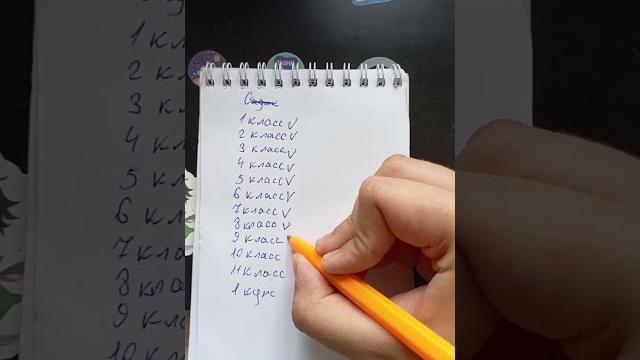 Садик
1 класс ✓
2 класс ✓
3 класс ✓
4 класс ✓
5 класс ✓
6 класс ✓
7 класс ✓
8 класс ✓
9 класс
10 класс
11 класс
1 курс